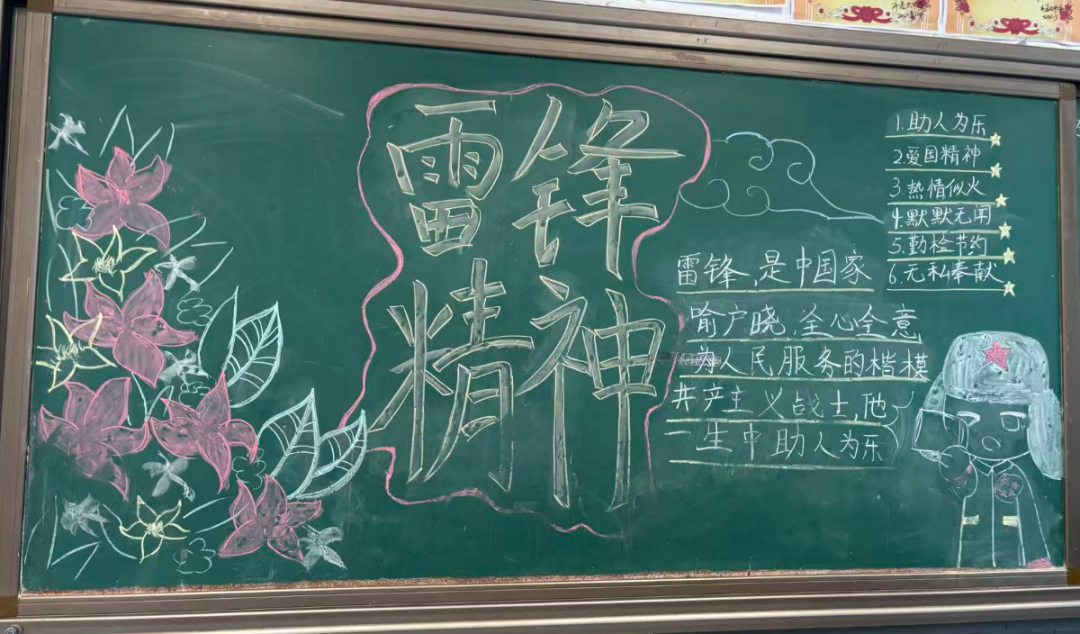 雷锋
精神
1.助人为乐
2.爱国精神
3.热情似火
4.默默无闻
5.勤俭节约
6.无私奉献
雷锋,是中国家
喻户晓,全心全意
为人民服务的楷模
共产主义战士,他
一生中助人为乐